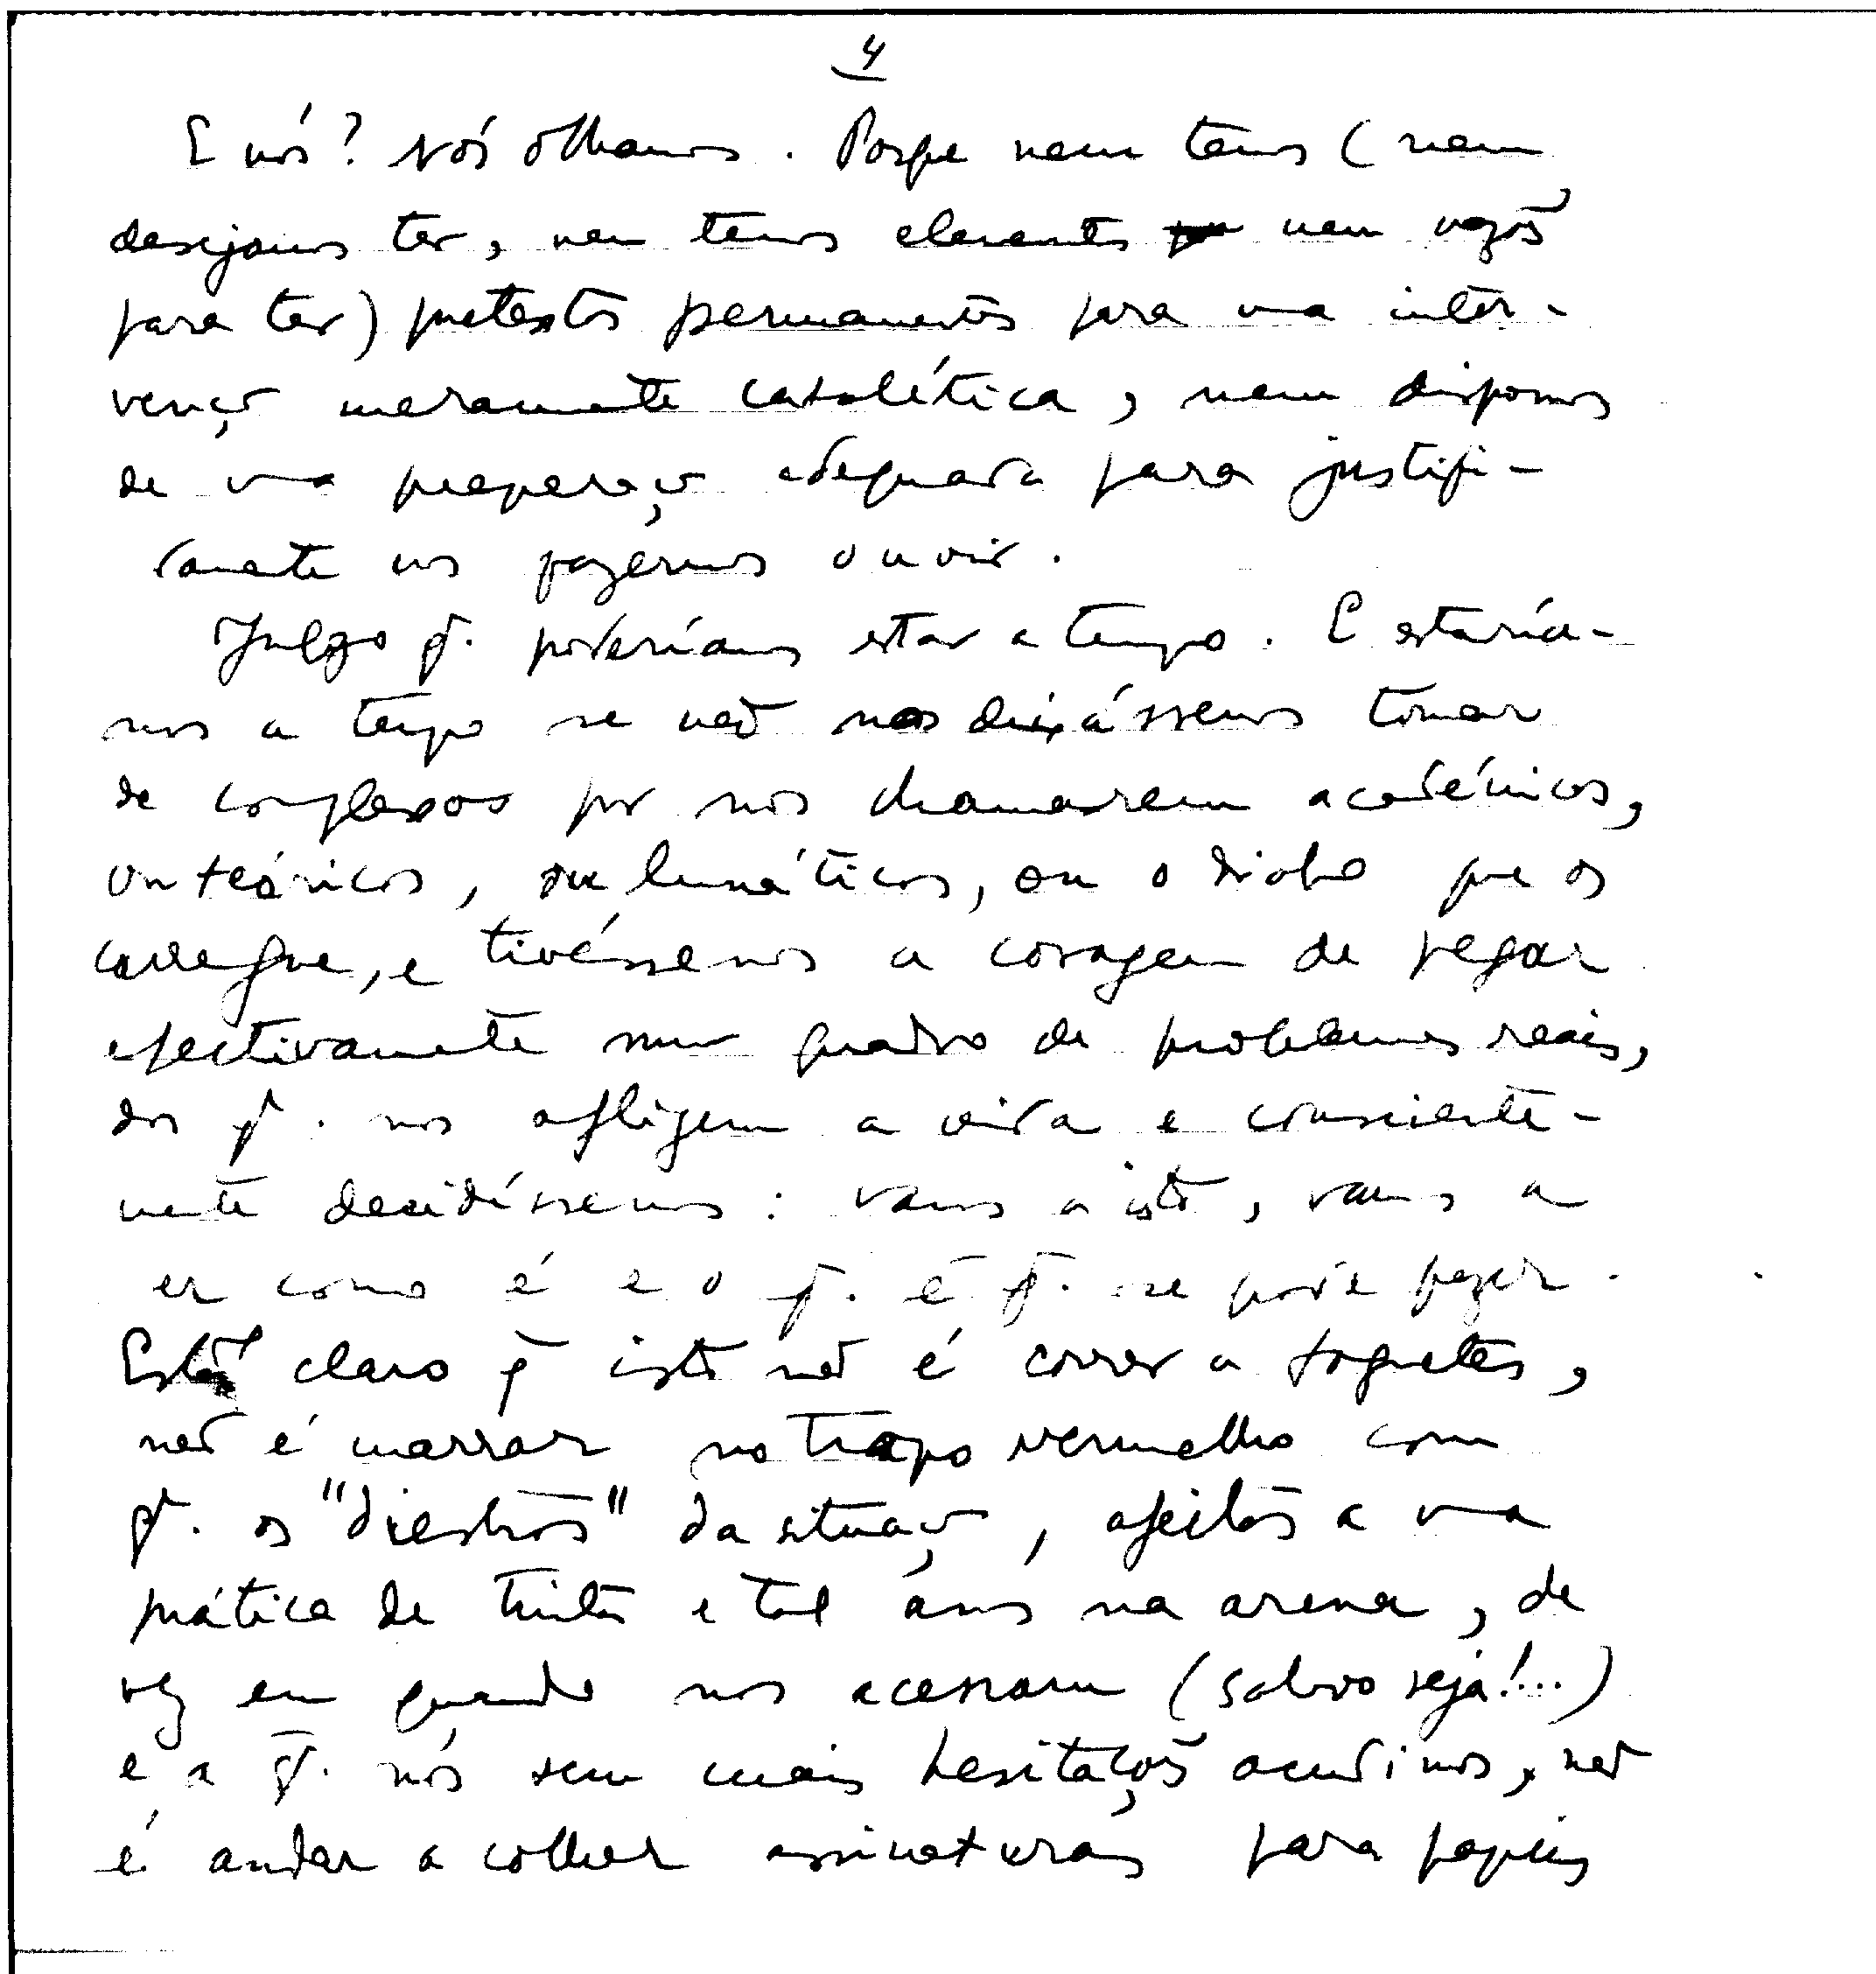 4
E nós? Nós olhamos. Porque nem temos (nem
desejamos ter, nem temos elementos nem razões
para ter) pretextos permanentes para uma inter-
venção meramente catalética, nem dispomos
de uma preparação adequada para justifi-
camente nos fazermos ouvir.
Julgo q. poderíamos estar a tempo. E estaría-
mos a tempo se não nos deixássemos tomar
de complexos por nos chamarem académicos,
ou teóricos, ou lunáticos, ou o diabo que os
carregue, e tivéssemos a coragem de pegar
efectivamente num quadro de problemas reais,
dos q. nos afligem a vida e consciente-
mente decidíssemos: vamos a isto, vamos a
er como é e o q. é q. se pode fazer.
Está claro q isto não é correr a foguetes,
não é marrar no trapo vermelho com
q. os "diestros" da situação, afeitos a uma
prática de trinta e tal anos na arena, de
vez em quando nos acessam (salvo seja!...)
e a q. nós sem mais hesitações acudimos, não
é andar a colher assinaturas para papéis